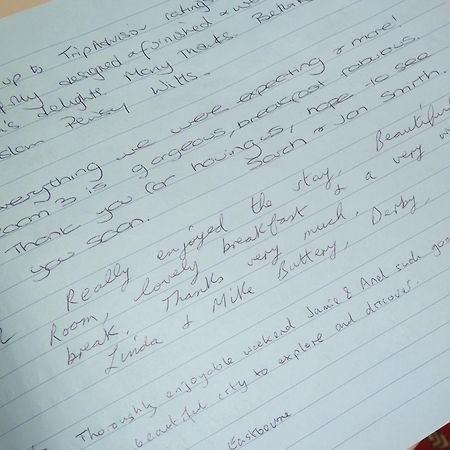 up to TripAdvisor ratings
fully designed & furnished & a we
's delights. Many Thanks. Bella
Pewsey Wilts.
everything we were expecting & more!
Room 3 is gorgeous, breakfast fabulous.
Thank you for having us, hope to see
you soon. Sarah & Jon Smith.
Really enjoyed the stay, Beautiful
Room, lovely breakfast & a very
break. Thanks very much,
Linda & Mike Buttery, Derby.
Thoroughly enjoyable weekend Jamie & And such
beautiful city to explore and discover.
Eastbourne